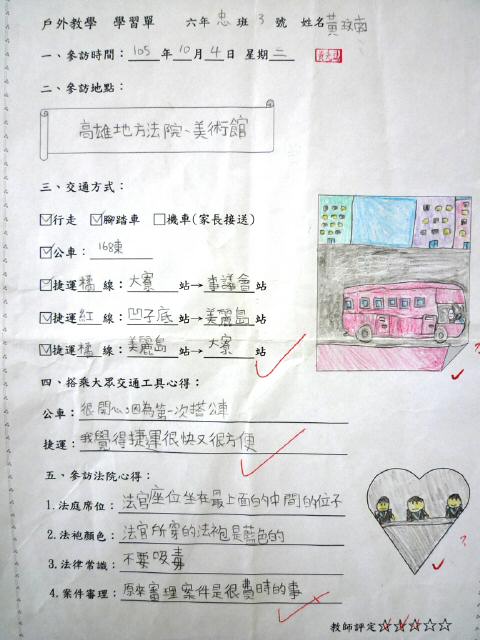 戶外教學 學習單 六年忠班3號 姓名黃玟
一、參訪時間：105年10月4日 星期二
二、參訪地點：
高雄地方法院、美術館
三、交通方式：
☑行走 ☑腳踏車 □機車(家長接送)
☑公車：168東
☑捷運橘線：大寮站→市議會站
☑捷運紅線：凹子底站→美麗島站
☑捷運橘線：美麗島站→大寮站
四、搭乘大眾交通工具心得：
公車：很開心，因為第一次搭公車
捷運：我覺得捷運很快又很方便
五、參訪法院心得：
1.法庭席位：法官座位坐在最上面的中間的位子
2.法袍顏色：法官所穿的法袍是藍色的
3.法律常識：不要吸毒
4.案件審理：原來審理案件是很費時的事
教師評定☆☆☆☆☆